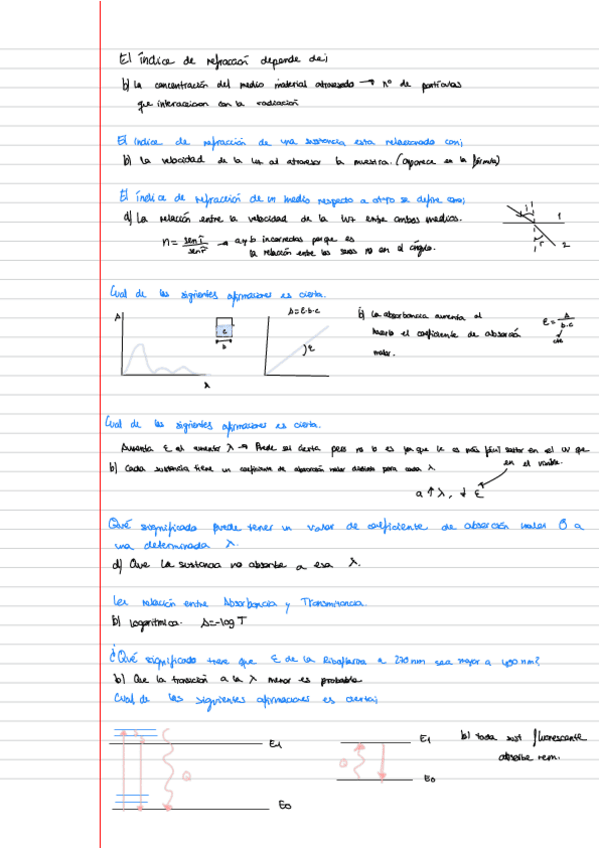 El índice de refracción depende de;
b) La concentración del medio material atravesado → nº de partículas
que interaccionan con la radiación
El índice de refracción de una sustancia esta relacionado con;
b) La velocidad de la luz al atravesar la muestra. (Aparece en la fórmula)
El índice de refracción de un medio respecto a otro se define como;
d) La relación entre la velocidad de la luz entre ambos medios.
n = sen i / sen r → a y b incorrectas porque es
la relación entre los senos no en el ángulo.
i
1
r
2
Cual de las siguientes afirmaciones es cierta.
A
λ
c
b
A=ε·b·c
ε
b) La absorbancia aumenta al
hacerlo el coeficiente de absorción
molar.
ε = A / b·c
cte
Cual de las siguientes afirmaciones es cierta.
Aumenta ε al aumentar λ → Puede ser cierta pero no lo es ya que le es más fácil saltar en el UV que
en el visible.
b) Cada sustancia tiene un coeficiente de absorción molar distinto para cada λ.
a ↑ λ, ↓ ε
Qué significado puede tener un valor de coeficiente de absorción molar 0 a
una determinada λ.
d) Que la sustancia no absorbe a esa λ.
La relación entre Absorbancia y Transmitancia.
b) logarítmica. A=-log T
¿Qué significado tiene que ε de la Riboflavina a 270 nm sea mayor a 450 nm?
b) Que la transición a la λ menor es probable
Cual de las siguientes afirmaciones es cierta;
E1
E0
Q
E1
E0
Q
b) toda sust fluorescente
absorbe rem.